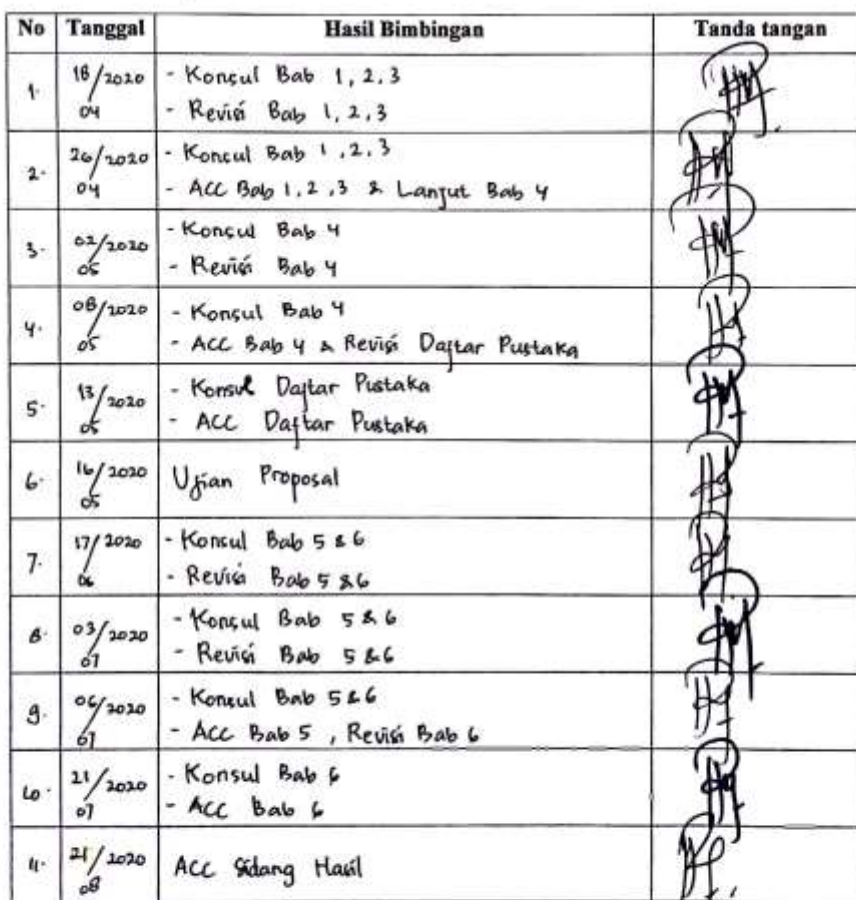 No Tanggal Hasil Bimbingan Tanda tangan
1. 18/04 2020 - Konsul Bab 1, 2, 3
- Revisi Bab 1, 2, 3
2. 26/04 2020 - Konsul Bab 1, 2, 3
- ACC Bab 1, 2, 3 & Lanjut Bab 4
3. 02/05 2020 - Konsul Bab 4
- Revisi Bab 4
4. 08/05 2020 - Konsul Bab 4
- ACC Bab 4 & Revisi Daftar Pustaka
5. 13/05 2020 - Konsul Daftar Pustaka
- ACC Daftar Pustaka
6. 16/05 2020 Ujian Proposal
7. 17/06 2020 - Konsul Bab 5 & 6
- Revisi Bab 5 & 6
8. 03/07 2020 - Konsul Bab 5 & 6
- Revisi Bab 5 & 6
9. 06/07 2020 - Konsul Bab 5 & 6
- ACC Bab 5, Revisi Bab 6
10. 21/07 2020 - Konsul Bab 6
- ACC Bab 6
11. 21/08 2020 ACC Sidang Hasil